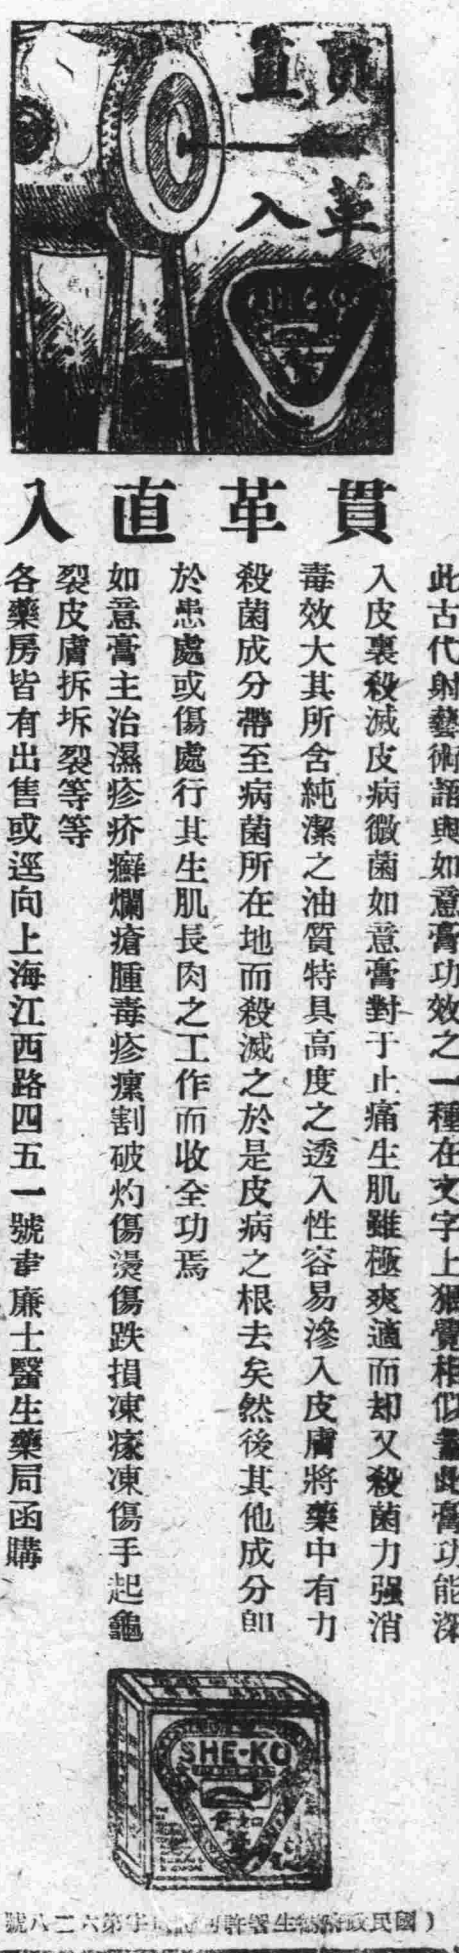 貫革
直入
SHE-KO
貫革直入
此古代射藝術語與如意膏功效之一種在文字上猶覺相似蓋此膏功能深
入皮裏殺滅皮病微菌如意膏對于止痛生肌雖極爽適而却又殺菌力强消
毒效大其所含純潔之油質特具高度之透入性容易滲入皮膚將藥中有力
殺菌成分帶至病菌所在地而殺滅之於是皮病之根去矣然後其他成分卽
於患處或傷處行其生肌長肉之工作而收全功焉
如意膏主治濕疹疥癬爛瘡腫毒疹瘰割破灼傷燙傷跌損凍瘃凍傷手起龜
裂皮膚拆坼裂等等
各藥房皆有出售或逕向上海江西路四五一號韋廉士醫生藥局函購
SHE-KO
如意膏
(國民政府衛生署許可證 字第六二八號